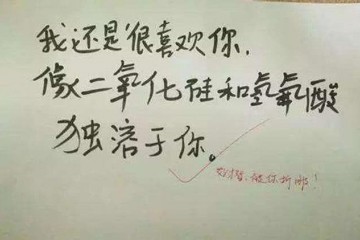 我还是很喜欢你，
像二氧化硅和氢氟酸
独溶于你。